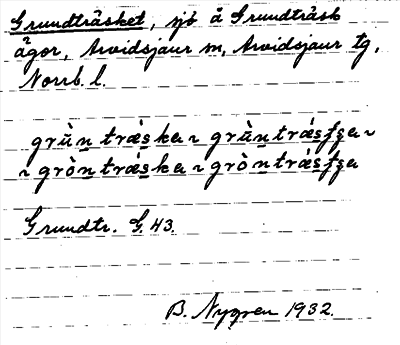 Grundträsket, sjö å Grundträsk
ägor, Arvidsjaur sn, Arvidsjaur tg,
Norrb. l.
grùntræ̀ska ~ grùntræ̀sʃʒa ~
~ gròntræ̀ska ~ gròntræ̀sʃʒa
Grundtr. G. 43.
B. Nygren 1932.